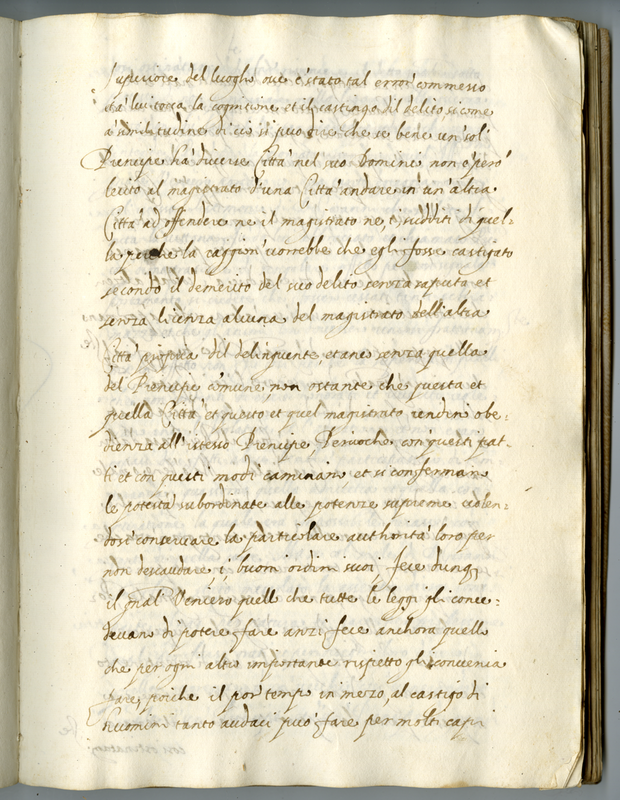 superiore del luogho ove è stato tal error' commesso
et à lui tocca la cognitione et il castingo dil delito si come
a similitudine di ciò si puo dire che se bene un' sol'
Prencipe hà diverse Città nel suo Domini non è però
lecito al magistrato d'una Città andare in un' altra
Città ad offendere ne il magistrato ne, i, sudditi di quel-
la perche la caggion' vorrebbe che egli fosse castigato
secondo il demerito del suo delito senza rispetto et
senza licenza alcuna del magistrato dell'altra
Città propria dil delinquente, et anco senza quella
del Prencipe comune, non ostante che questa et
quella Città et questo et quel magistrato rendino obe-
dienza all'istesso Prencipe, Percioche con' questi pat-
ti et con questi modi caminano, et si conferman
le potestà subordinate alle potenze supreme
dosi conservare la particolare authorità loro per
non descaudare, i, buoni ordini suoi, fece dunq
il gnal' Veniero quell che tutte le leggi gli conce-
devano di potere fare anzi fece anchora quello
che per ogni altro importante rispetto gli convenia
fare, poiche il por' tempo in mezo, al castigo di
huomini tanto audaci può fare per molti capi